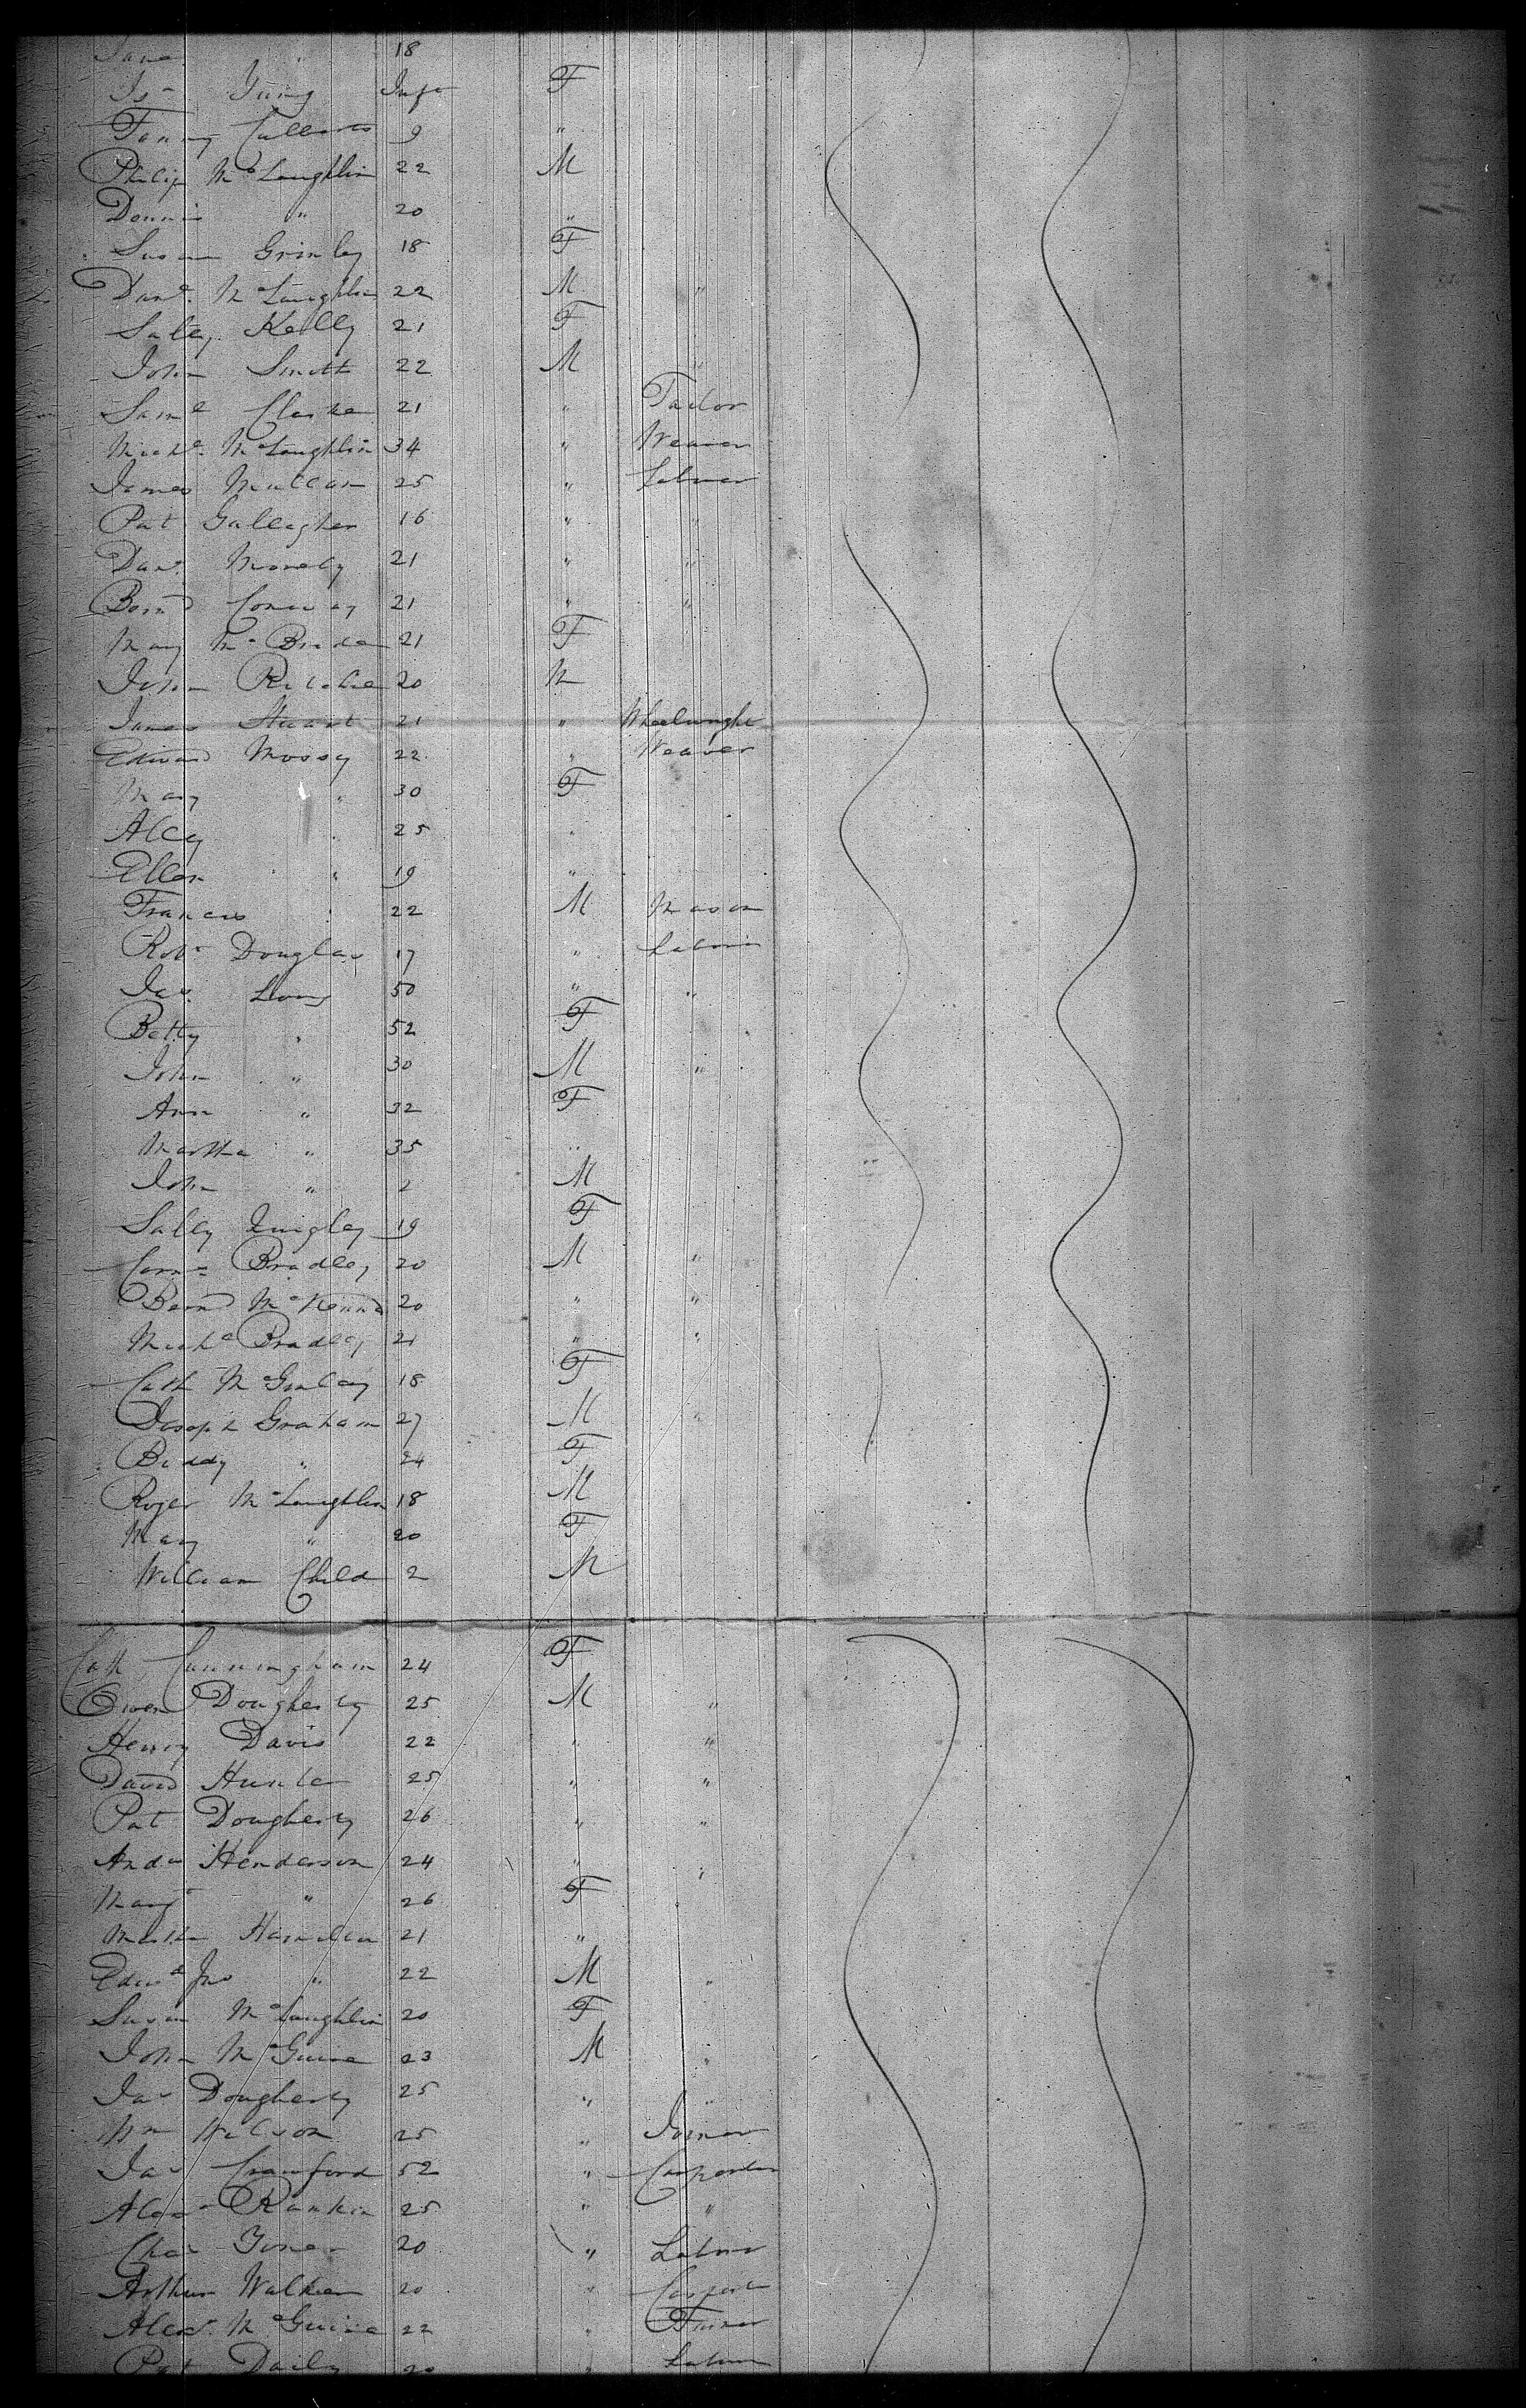 Jane " 18
Isa Infr F
Fanny 9 "
Philip McLaughlin 22 M
Dennis " 20 "
Susan Grinley 18 F
Danl. McLaughlin 22 M "
Salley Kelly 21 F
John Smith 22 M "
Saml Clarke 21 " Tailor
Michl. McLaughlin 34 " Weaver
James Mullan 25 " Labner
Pat Gallagher 16 " "
Danl. 21 " "
Bernd Conway 21 " "
Mary McBride 21 F
John Ritchie 20 M
James Stuart 21 " Wheelwright
Edward Mossy 22 " Weaver
Mary " 30 F
Alley " 25 "
Ellen " 19 "
Francis " 22 M Mason
Robt Douglas 17 " Labner
Jas. Long 50 " "
Betty " 52 F
John " 30 M "
Ann " 32 F
Martha " 35 "
John " 2 M
Sally Quigley 19 F
Corns Bradley 20 M "
Bernd McKenna 20 " "
Michl Bradley 21 " "
Cath McGinley 18 F
Joseph Graham 27 M "
Biddy " 24 F
Roger McLaughlin 18 M
Mary " 20 F
William Child 2 M
Cath Cunningham 24 F
Owen Dougherty 25 M "
Henry Davis 22 " "
David Hunter 25 " "
Pat Dougherty 26 " "
Andw Henderson 24 " "
Margt " 26 F
Martha Hamilton 21 "
Edwd Jno " 22 M "
Susan McLaughlin 20 F
John McGuire 23 M "
Jas Dougherty 25 " "
Wm Wilson 25 " Joiner
Jas Crawford 52 " Carpenter
Alexr Rankin 25 " "
Chas 20 " Labner
Arthur Walker 20 " Carpenter
Alexr. McGuire 22 "
Pat Daily 20 " Labner